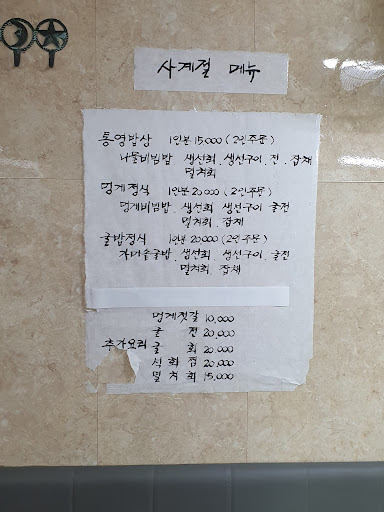 사계절 메뉴
통영밥상 1인분 15,000 (2인주문)
나물비빔밥 생선회, 생선구이, 전, 잡채
멸치회
멍게정식 1인분 20,000 (2인주문)
멍게비빔밥, 생선회 생선구이 굴전
멸치회, 잡채
굴밥정식 1인분 20,000 (2인주문)
가마솥굴밥, 생선회, 생선구이, 굴전
멸치회, 잡채
멍게젓갈 10,000
굴 전 20,000
추가요리 굴 회 20,000
석화찜 20,000
멸치회 15,000